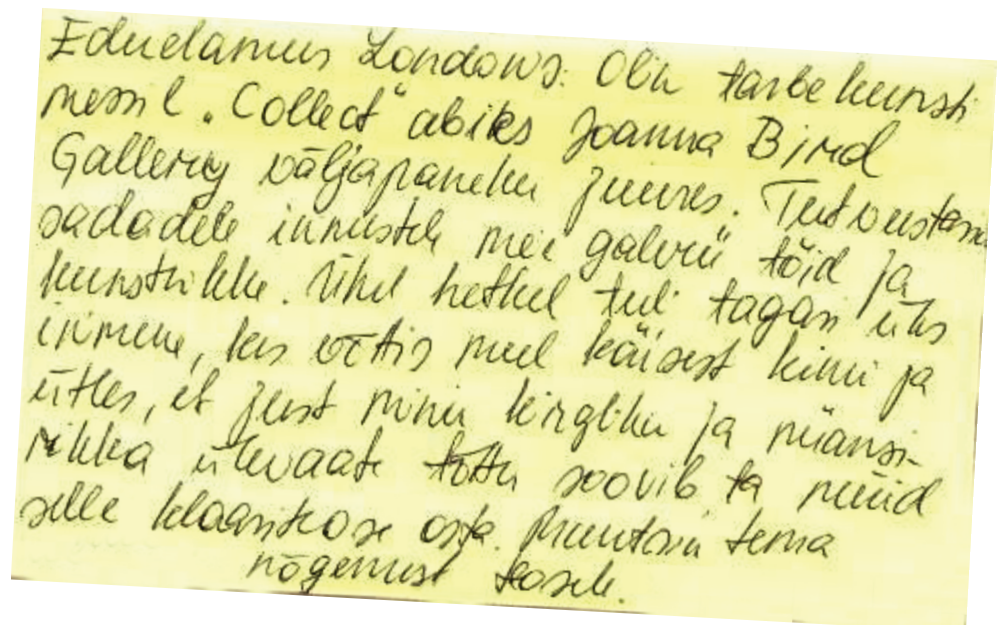 Eduelamus Londonis. Olin tarbekunsti
messil „Collect" abiks Joanna Bird
Gallery väljapaneku juures. Tutvustasin
sadadele inimestele meie galerii töid ja
kunstnikke. Ühel hetkel tuli tagasi üks
inimene, kes võttis mul käisest kinni ja
ütles, et just minu kirgliku ja nüansi-
rikka ülevaate tõttu soovib ta nüüd
selle klaasiteose osta. Muutsin tema
nägemust teosele.